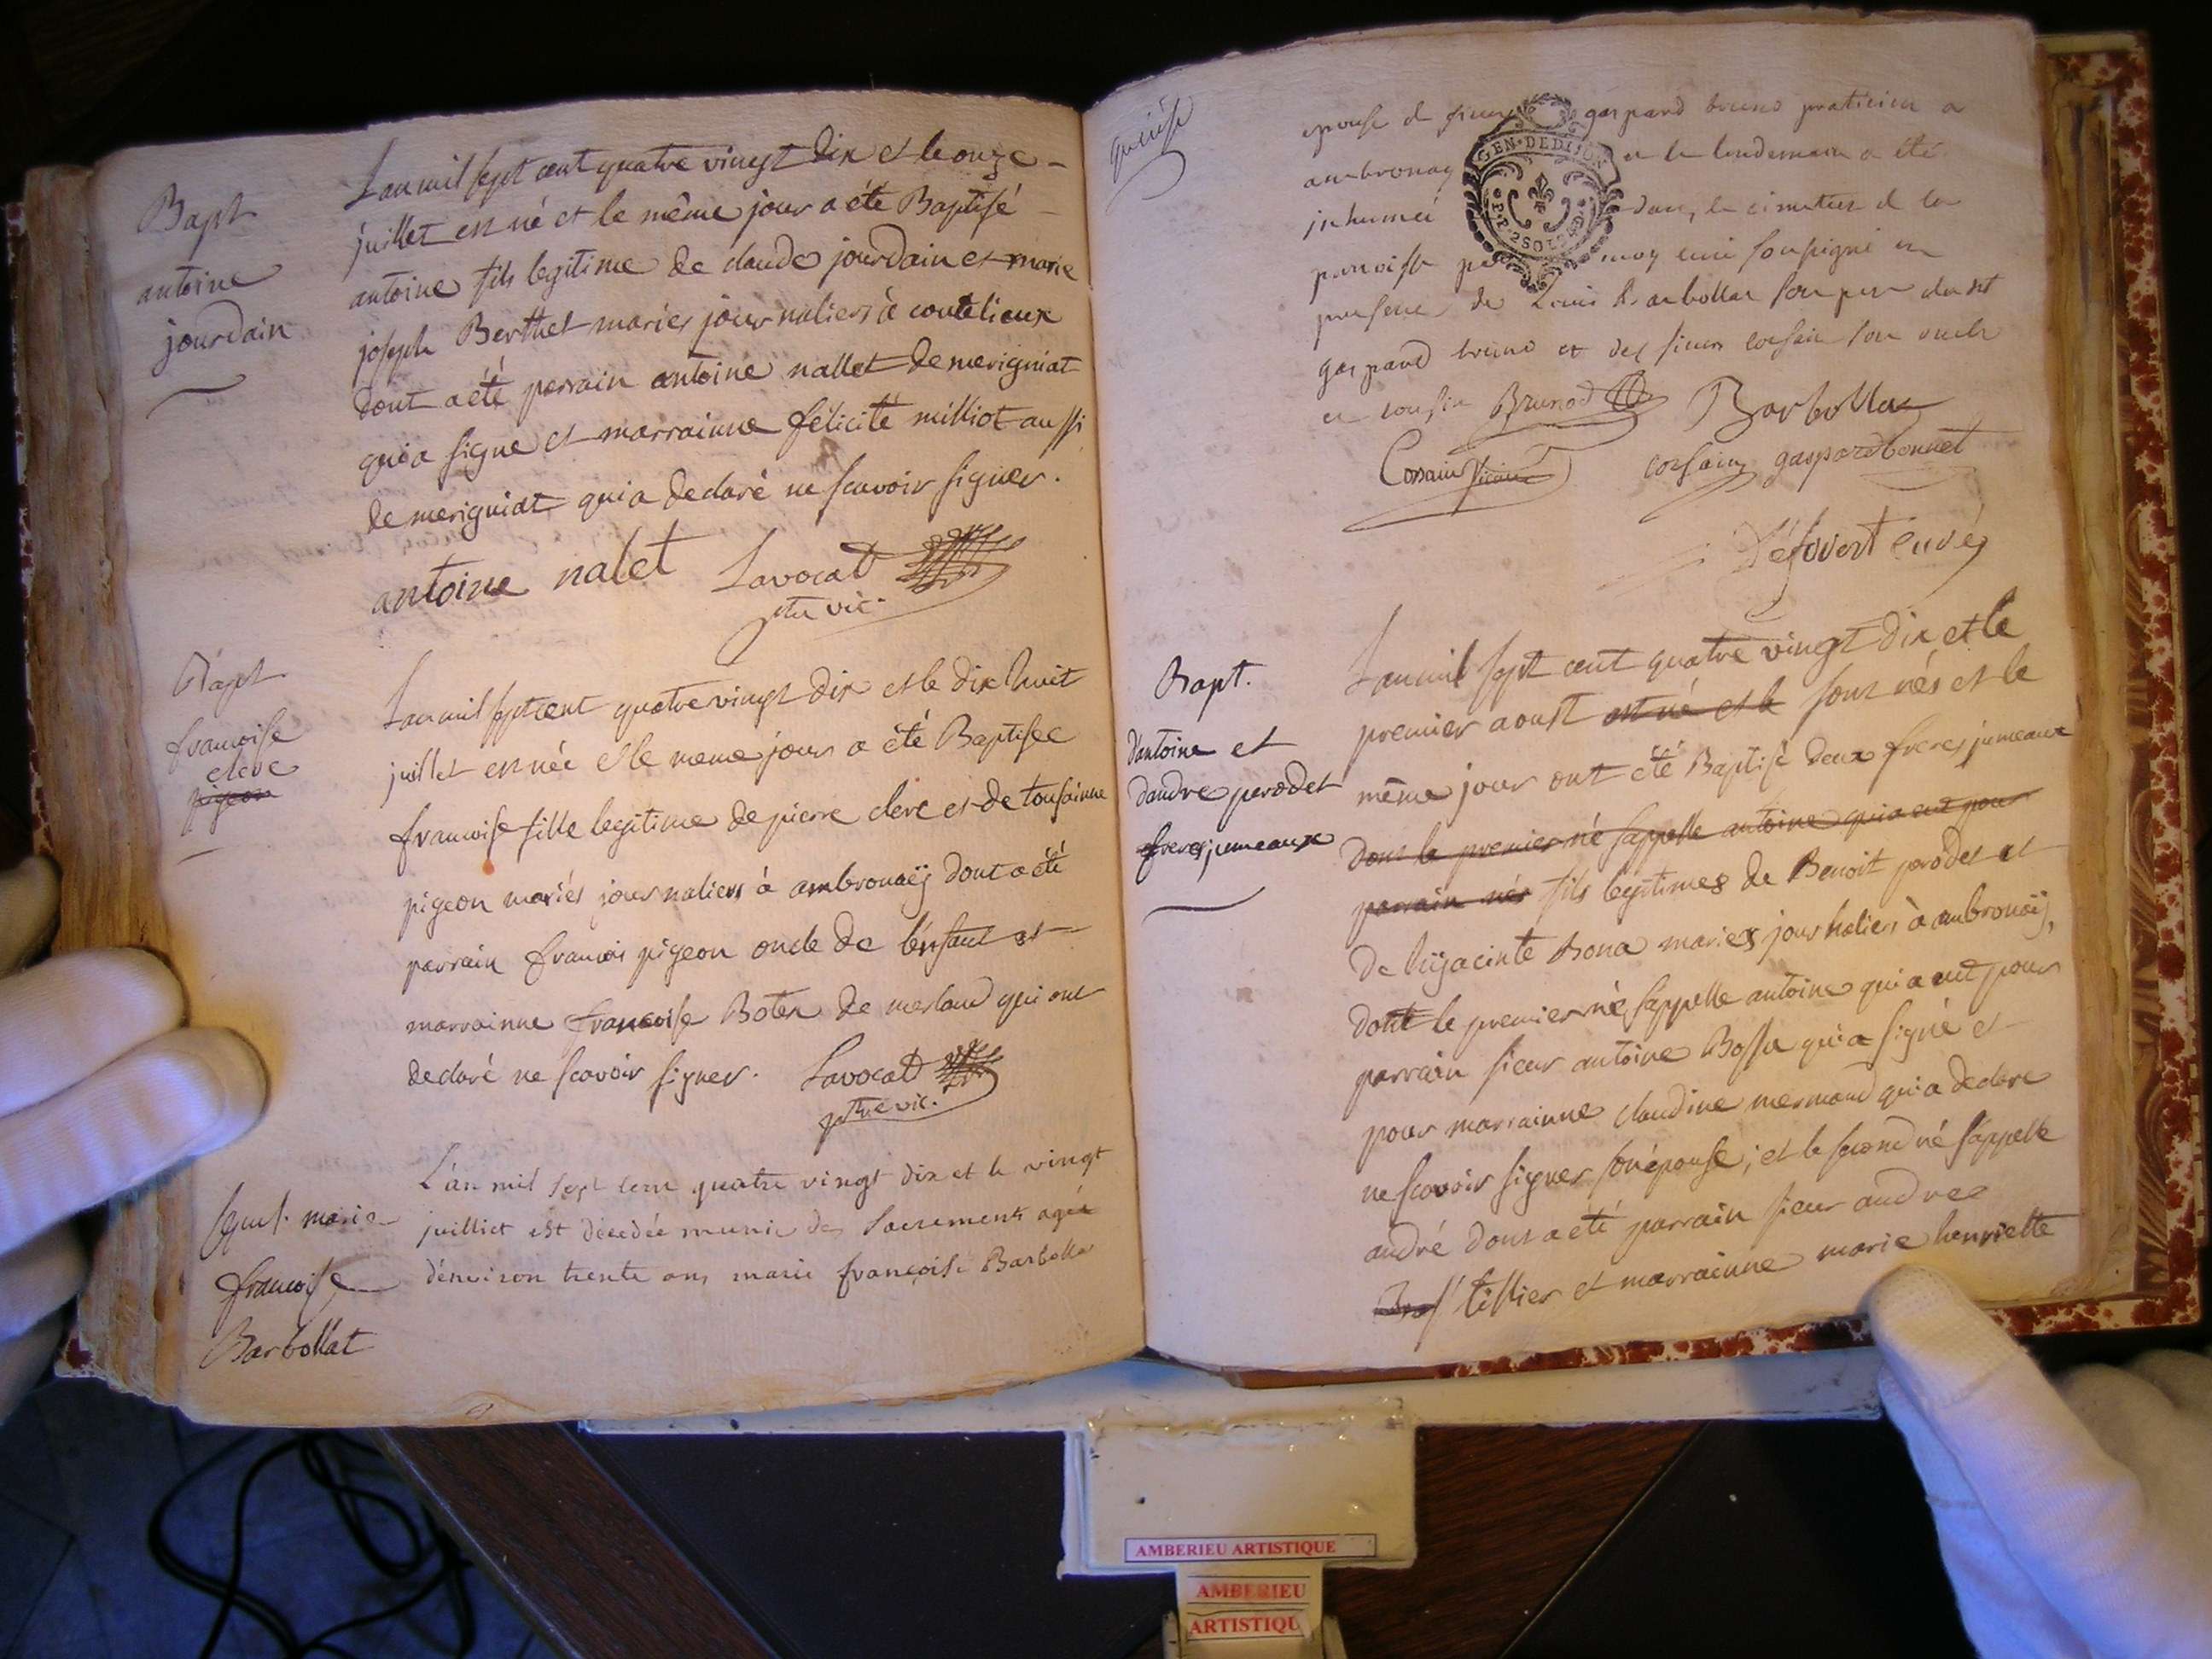 Bapt
antoine
jourdain
L'an mil sept cent quatre vingt dix et le onze
juillet est né et le même jour a été Baptisé
antoine fils legitime de claude jourdain et marie
joseph Berthet mariés journaliers à coutelieux
dont a été parrain antoine nallet de merigniat
qui a signe et marrainne félicité milliot aussi
de merigniat qui a declaré ne scavoir signer.
antoine nalet Lavocat
ptre vic.
Bapt
francoise
cleve
pigeon
L'an mil sept cent quatre vingt dix et le dix huit
juillet est née et le meme jour a été Baptisee
francoise fille legitime de pierre cleve et de tousainne
pigeon mariés journaliers à ambronaÿ dont a été
parrain francois pigeon oncle de l'enfant et
marrainne francoise Botex de merland qui ont
declaré ne scavoir signer. Lavocat
ptre vic.
Sepult. marie
francoise
Barbollat
L'an mil sept cent quatre vingt dix et le vingt
juilliet est décedée munie des sacrements agée
d'environ trente ans marie françoise Barbollat
epouse de sieur gaspard bruno praticien a
ambronay et le lendemain a été
inhumée dans le cimetiere de la
paroisse par moy curé soussigné en
presence de Louis Barbollat son pere du st
gaspard bruno et des sieurs corsain son oncle
et cousin Brunod Barbollat
Corsain corsain gaspard bonnet
curé
Bapt.
d'antoine et
d'andre perodet
freres jumeaux
L'an mil sept cent quatre vingt dix et le
premier aoust est né et le sont nés et le
même jour ont été Baptisé deux freres jumeaux
dont le premier né s'appelle antoine qui a eut pour
parrain nés fils legitimes de Benoit perodet et
de hÿacinte Bona mariés journaliers à ambronaÿ,
dont le premier né s'appelle antoine qui a eut pour
parrain sieur antoine Bossu qui a signé et
pour marrainne claudine mermand qui a declare
ne scavoir signer son épouse; et le second né s'appelle
andré dont a été parrain sieur andre
tillier et marrainne marie henriette
GEN. DE DIJON
AMBERIEU ARTISTIQUE
AMBERIEU
ARTISTIQU